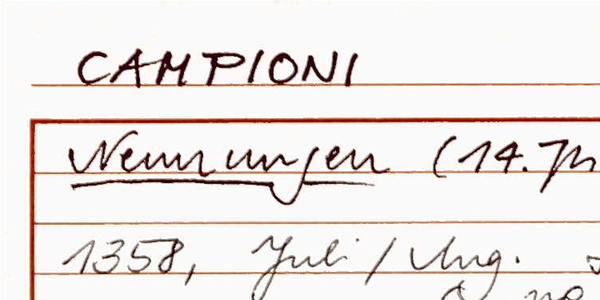 CAMPIONI
Nennungen (14.Jh
1358, Juli / Aug.